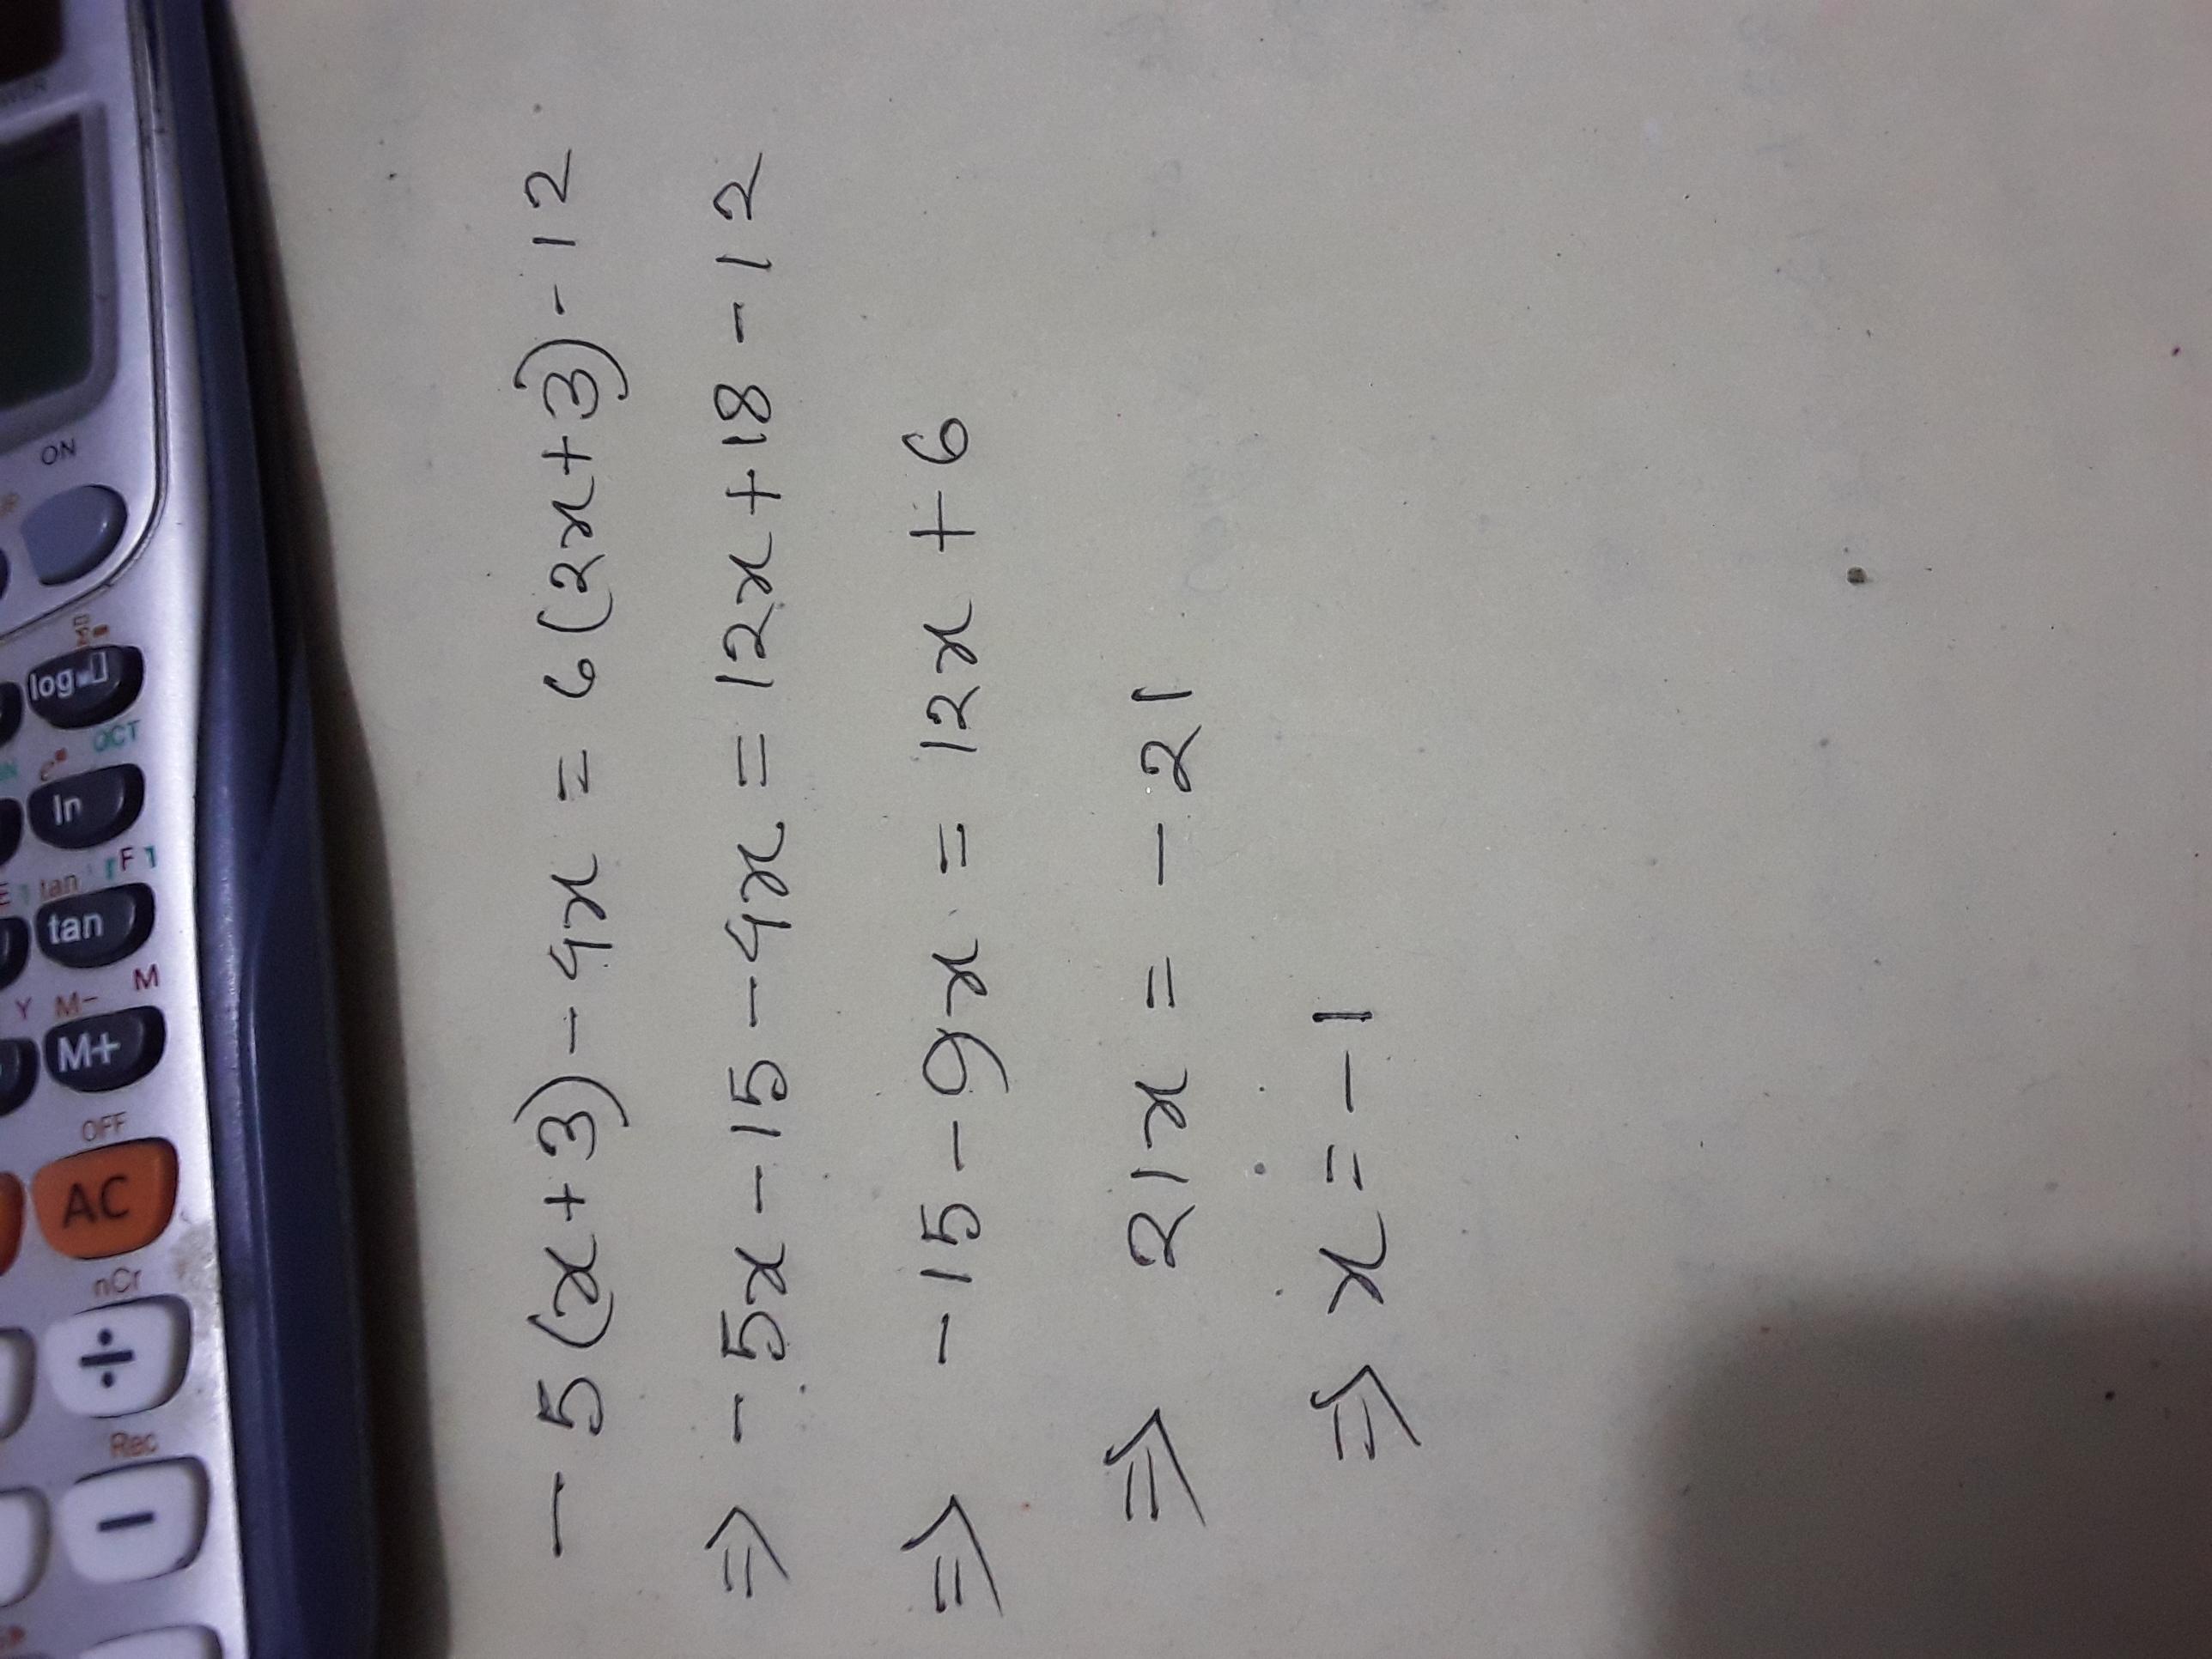 -5(x+3)-4x = 6(2x+3)-12
⇒ -5x-15-4x = 12x+18-12
⇒ -15-9x = 12x+6
⇒ 21x = -21
⇒ x = -1
ON
log
OCT
ln
tan
tan
F
Y M- M
M+
OFF
AC
nCr
÷
Rec
−